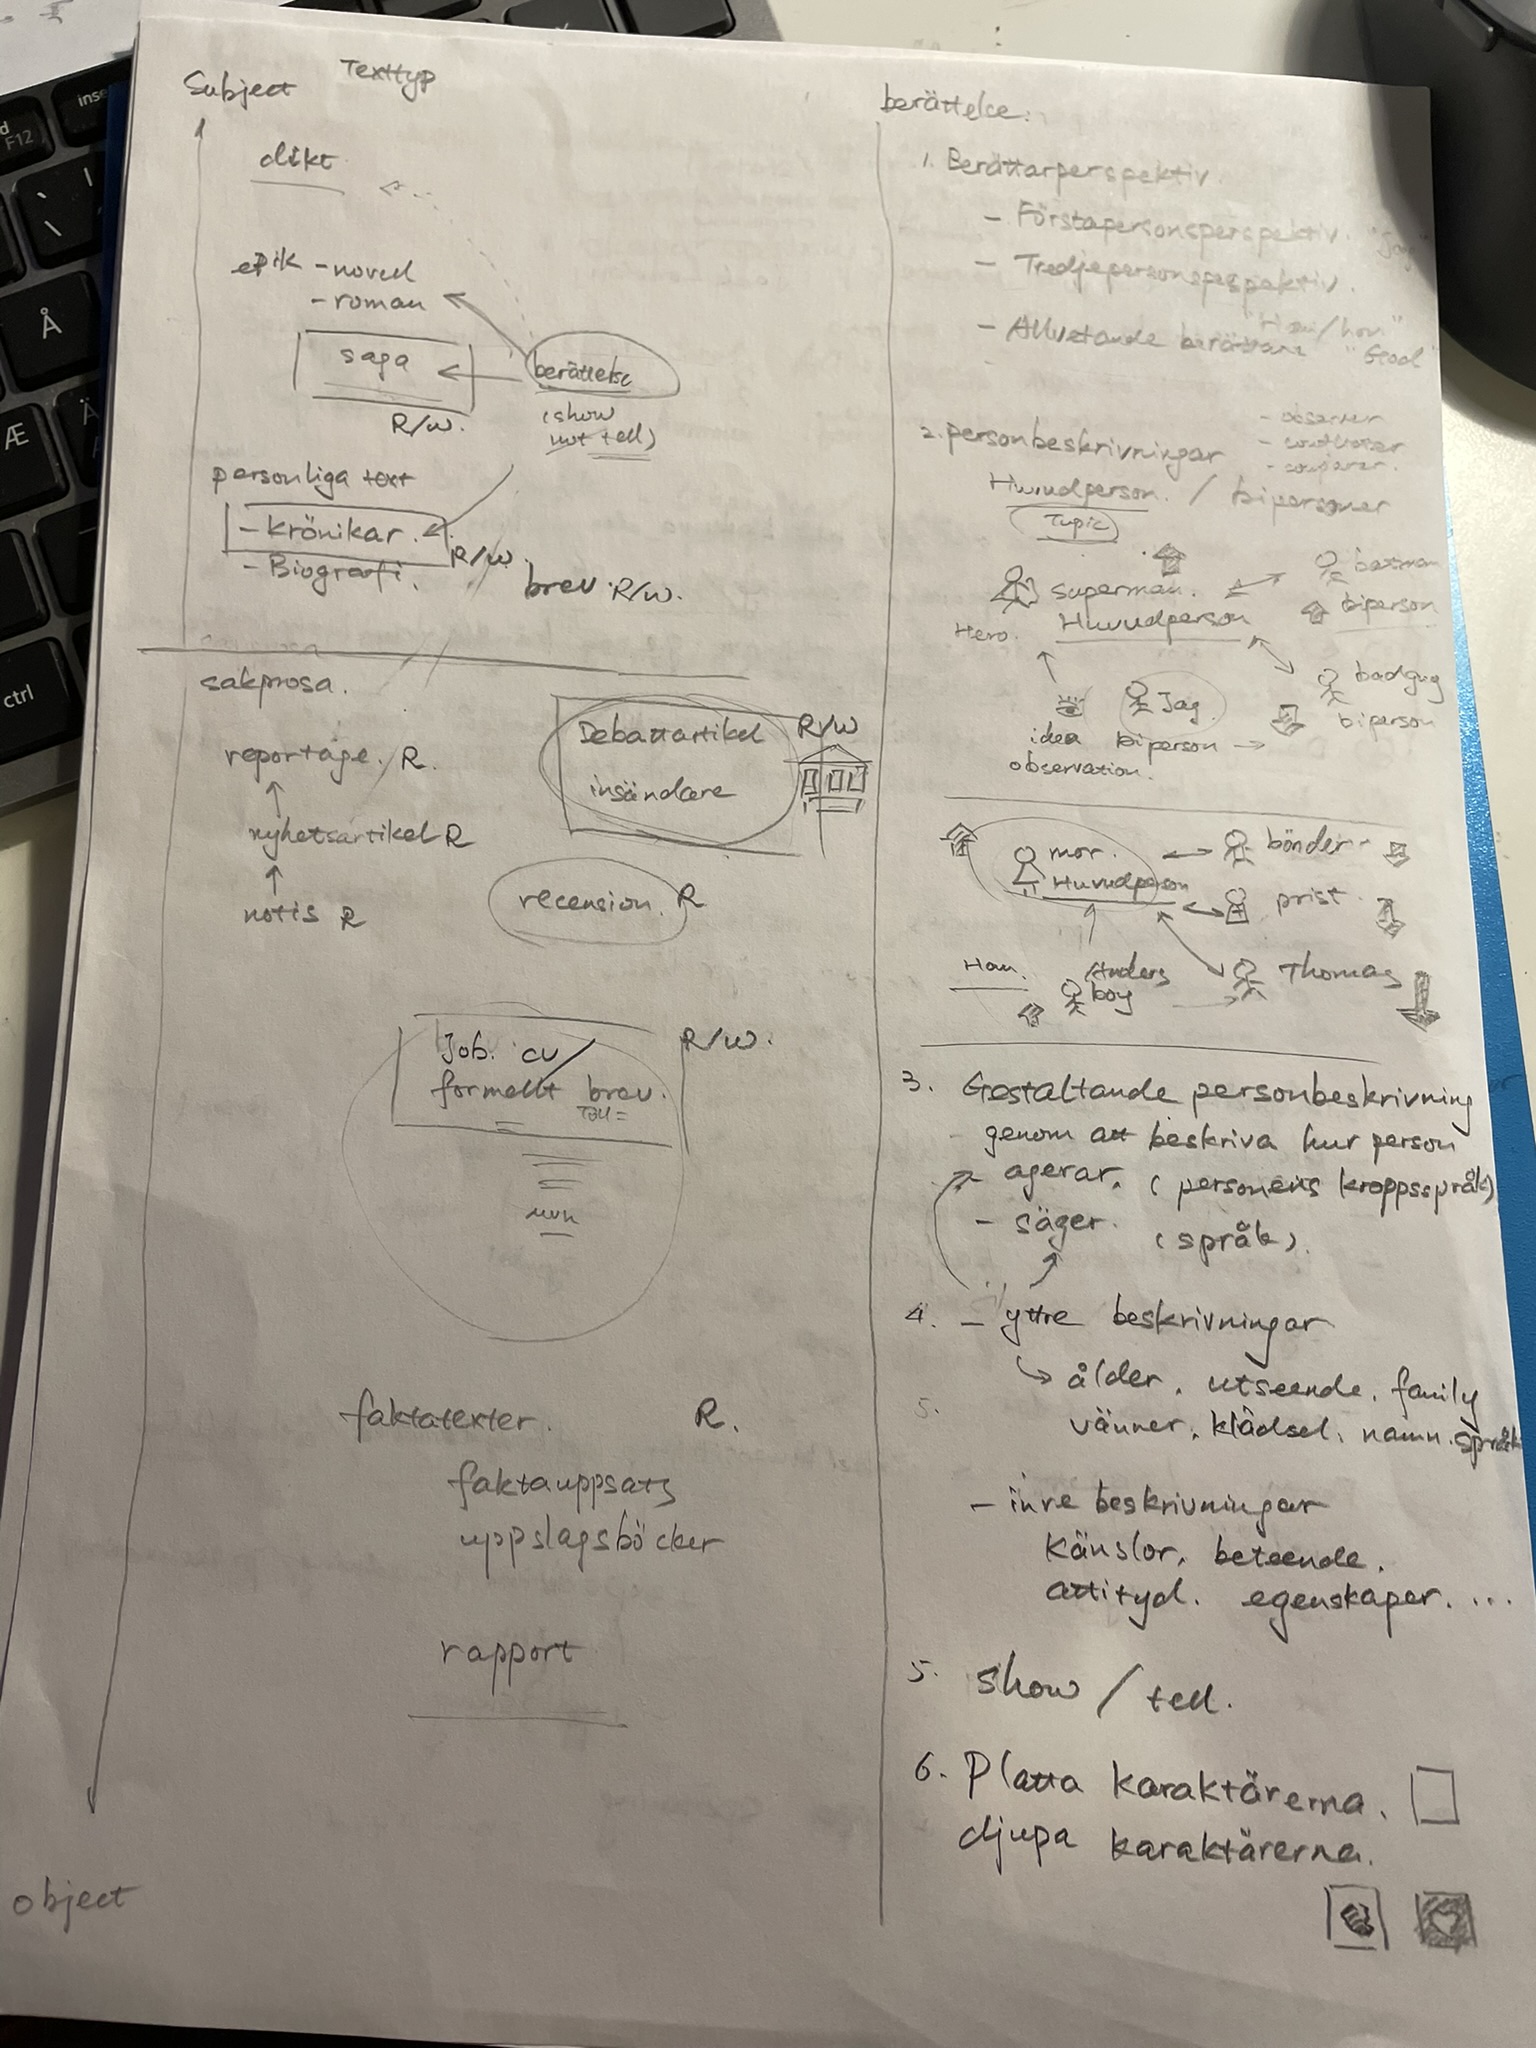 Subject Texttyp
dikt
epik - novell
- roman
saga
R/W.
berättelse
(show
not tell)
personliga text
- Krönikar.
R/W.
- Biografi.
brev R/W.
sakprosa.
reportage. R.
nyhetsartikel R
notis R
Debattartikel R/W
insändare
recension. R
Job. cv / R/W.
formellt brev.
faktatexter. R.
faktauppsats
uppslagsböcker
rapport
object
berättelse.
1. Berättarperspektiv.
- Förstapersonsperspektiv. "Jag"
- Tredjepersonsperspektiv.
"Han/hon"
- Allvetande berättare "God"
- observer
2. personbeskrivningar
Huvudperson. / bipersoner
Topic
superman. batman
Hero. Huvudperson biperson
badguy
Jag. biperson
idea biperson
observation.
mor. bönder
Huvudperson prist.
Han. Anders Thomas
boy
3. Gestaltande personbeskrivning
genom att beskriva hur person
- agerar. (personens kroppsspråk)
- säger. (språk).
4. - yttre beskrivningar
ålder. utseende. family
5.
vänner. klädsel. namn. språk
- inre beskrivningar
känslor. beteende.
attityd. egenskaper. ...
5. show / tell.
6. Platta karaktärerna.
djupa karaktärerna.